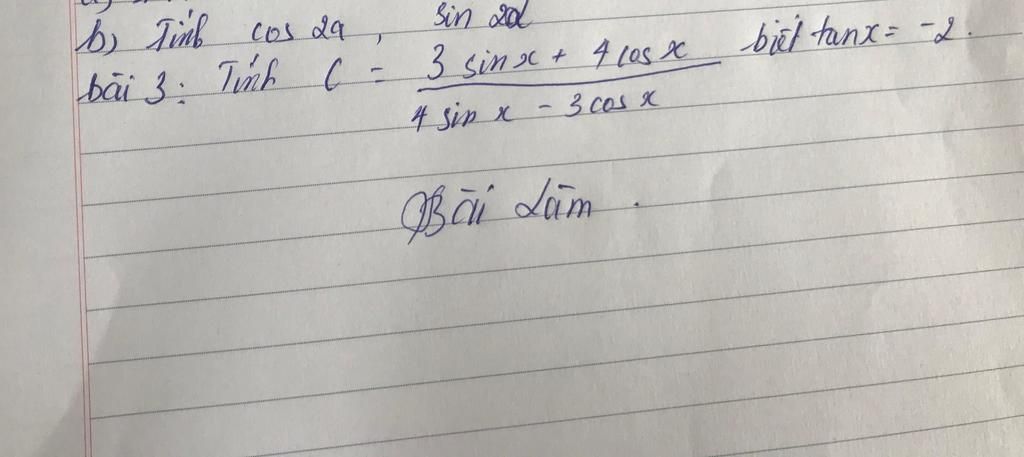 b) Tính cos 2a, sin 2α
bài 3: Tính C = \frac{3 sin x + 4 cos x}{4 sin x - 3 cos x} biết tan x = -2.
Bài Làm.